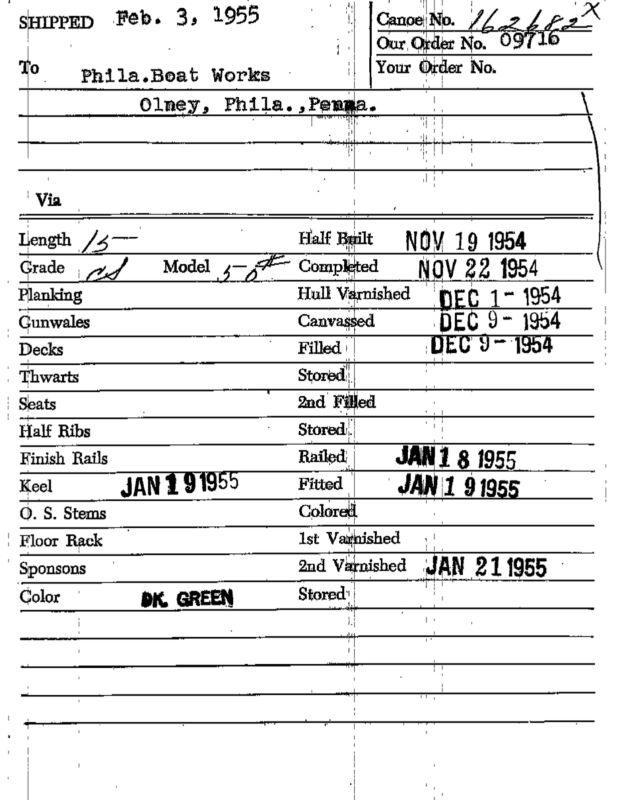 SHIPPED Feb. 3, 1955 Canoe No. 162682 X
Our Order No. 09716
To Phila.Boat Works Your Order No.
Olney, Phila.,Penna.
Via
Length 15 Half Built NOV 19 1954
Grade CS Model 50# Completed NOV 22 1954
Planking Hull Varnished DEC 1- 1954
Gunwales Canvassed DEC 9- 1954
Decks Filled DEC 9- 1954
Thwarts Stored
Seats 2nd Filled
Half Ribs Stored
Finish Rails Railed JAN 18 1955
Keel JAN 19 1955 Fitted JAN 19 1955
O. S. Stems Colored
Floor Rack 1st Varnished
Sponsons 2nd Varnished JAN 21 1955
Color DK. GREEN Stored